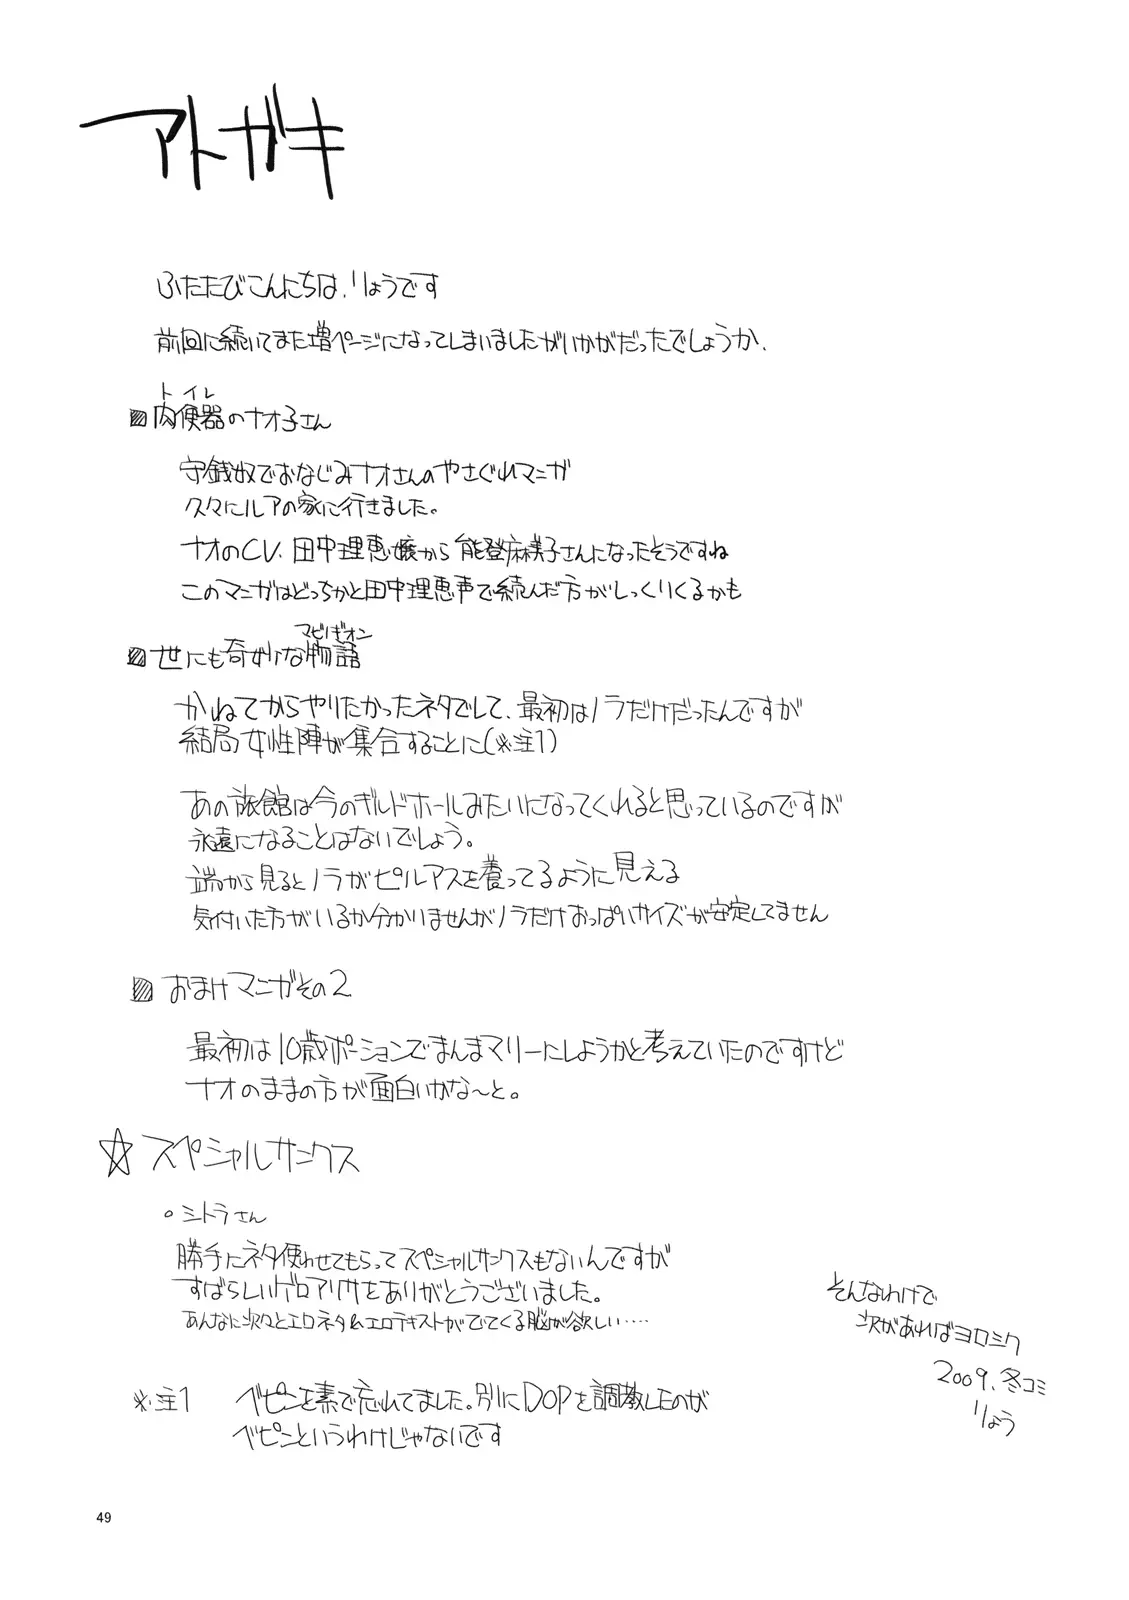 アトガキ
ふたたびこんにちは、りょうです
前回に続いてまた増ページになってしまいましたがいかがだったでしょうか、
トイレ
■肉便器のナオ子さん
守銭奴でおなじみナオさんのやさぐれマンガ
久々にルアの家に行きました。
ナオのCV、田中理恵嬢から能登麻美子さんになったそうですね
このマンガはどっちかと田中理恵声で読んだ方がしっくりくるかも
マビノギオン
■世にも奇妙な物語
かねてからやりたかったネタでして、最初はノラだけだったんですが
結局女性陣が集合することに(※注1)
あの旅館は今のギルドホールみたいになってくれると思っているのですが
永遠になることはないでしょう。
端から見るとノラがピルアスを養ってるように見える
気付いた方がいるか分かりませんがノラだけおっぱいサイズが安定してません
■おまけマンガその2
最初は10歳ポーションでまんまマリーにしようかと考えていたのですけど
ナオのままの方が面白いかな〜と。
☆スペシャルサンクス
○ミトラさん
勝手にネタ使わせてもらってスペシャルサンクスもないんですが
すばらしいゲロアリサをありがとうございました。
あんなに次々とエロネタ&エロテキストがでてくる脳が欲しい……
※注1 ベピンを素で忘れてました。別にDOPを調教したのが
ベピンというわけじゃないです
そんなわけで
次があればヨロシク
2009、冬コミ
りょう
49